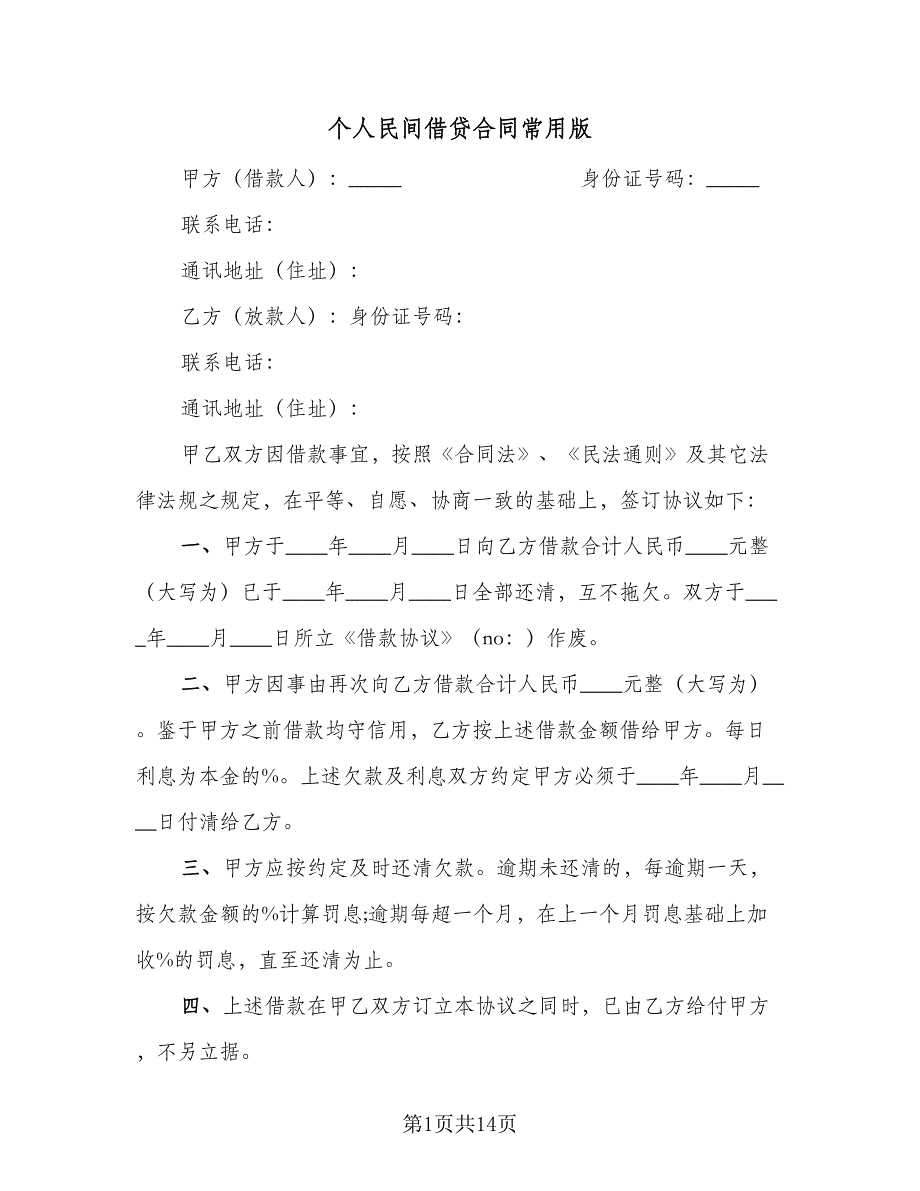 个人民间借贷合同常用版
甲方（借款人）：_____ 身份证号码：_____
联系电话：
通讯地址（住址）：
乙方（放款人）：身份证号码：
联系电话：
通讯地址（住址）：
甲乙双方因借款事宜，按照《合同法》、《民法通则》及其它法
律法规之规定，在平等、自愿、协商一致的基础上，签订协议如下：
一、甲方于____年____月____日向乙方借款合计人民币____元整
（大写为）已于____年____月____日全部还清，互不拖欠。双方于___
_年____月____日所立《借款协议》（no：）作废。
二、甲方因事由再次向乙方借款合计人民币____元整（大写为）
。鉴于甲方之前借款均守信用，乙方按上述借款金额借给甲方。每日
利息为本金的%。上述欠款及利息双方约定甲方必须于____年____月__
__日付清给乙方。
三、甲方应按约定及时还清欠款。逾期未还清的，每逾期一天，
按欠款金额的%计算罚息;逾期每超一个月，在上一个月罚息基础上加
收%的罚息，直至还清为止。
四、上述借款在甲乙双方订立本协议之同时，已由乙方给付甲方
，不另立据。
第1页共14页